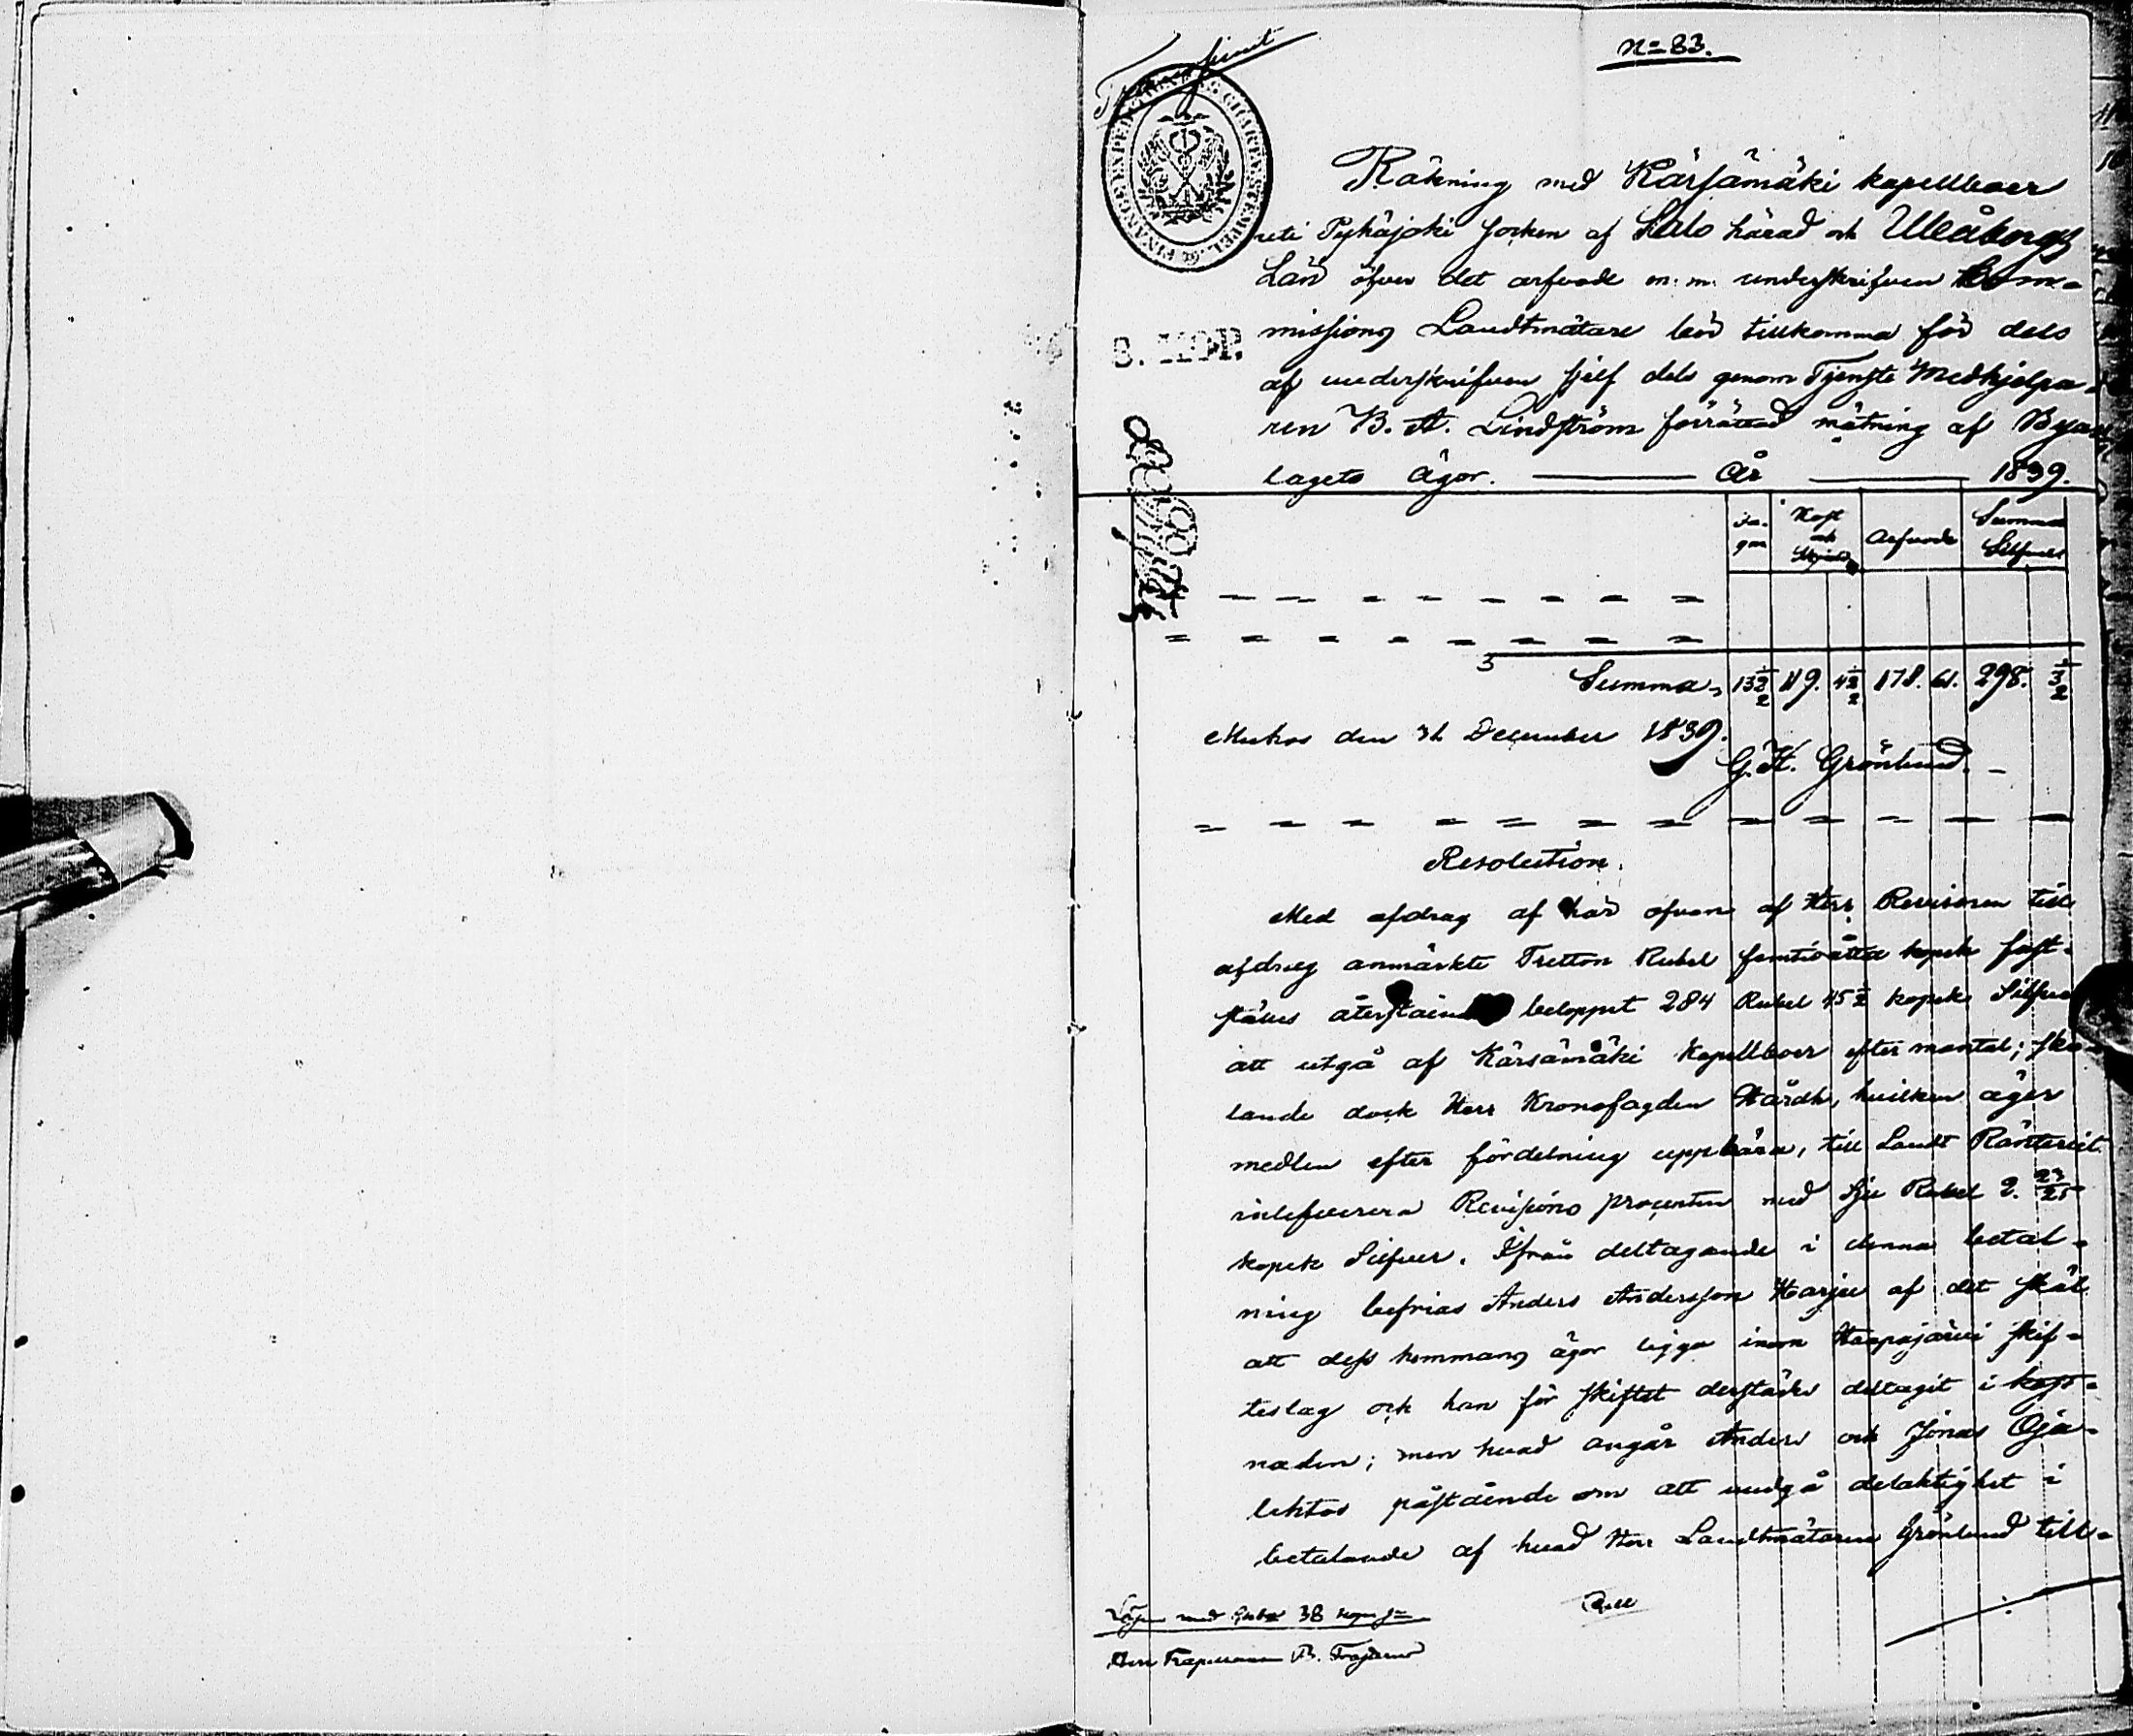 n=83.
Transsumt
FINANCE EXPEDITIONENS CHARTÆ STEMPEL
Räkning med Kärsämäki kapellboer
uti Pyhäjoki socken af Salo härad och Uleåborgs
Län öfver det arfvode m.m. underskrifven Com-
missions Landtmätare bör tillkomma för dels
af underskrifven sjelf dels genom Tjenste Medhjelpa-
ren B. A. Lindström förrättad mätning af Bya
lagets Ägor. År 1839.
Da-
gar
Kost
och
Skjuts
Arfvode
Summa
Silfver
Summa 13½ 119. 4½ 178. 61. 298. 3½
Muhos den 31 December 1839.
G. H. Grönlund.
Resolution.
Med afdrag af här ofvan af Herr Revisoren till
afdrag anmärkte Tretton Rubel femtioåtta kopek fast-
ställes beloppet 284 Rubel 45½ kopek Silfver
att utgå af Kärsämäki Kapellboer efter mantal; sko-
lande dock Herr Kronofogden Hårdh, hvilken äger
medlen efter fördelning uppbära, till Landt Ränteriet
inlefverera Revisions procenten med sju Rubel 2. 23/25
kopek Silfver. Ifrån deltagande i denna betal-
ning befrias Anders Andersson Harju af det skäl
att dess hemmans ägor ligga inom Haapajärvi skif-
teslag och han för skiftet derstädes deltagit i kost-
naden; men hvad angår Anders och Jonas Oja-
lehtos påstående om att undgå delaktighet i
betalande af hvad Herr Landtmätaren Grönlund till-
Lösen med 38 kop
Herr